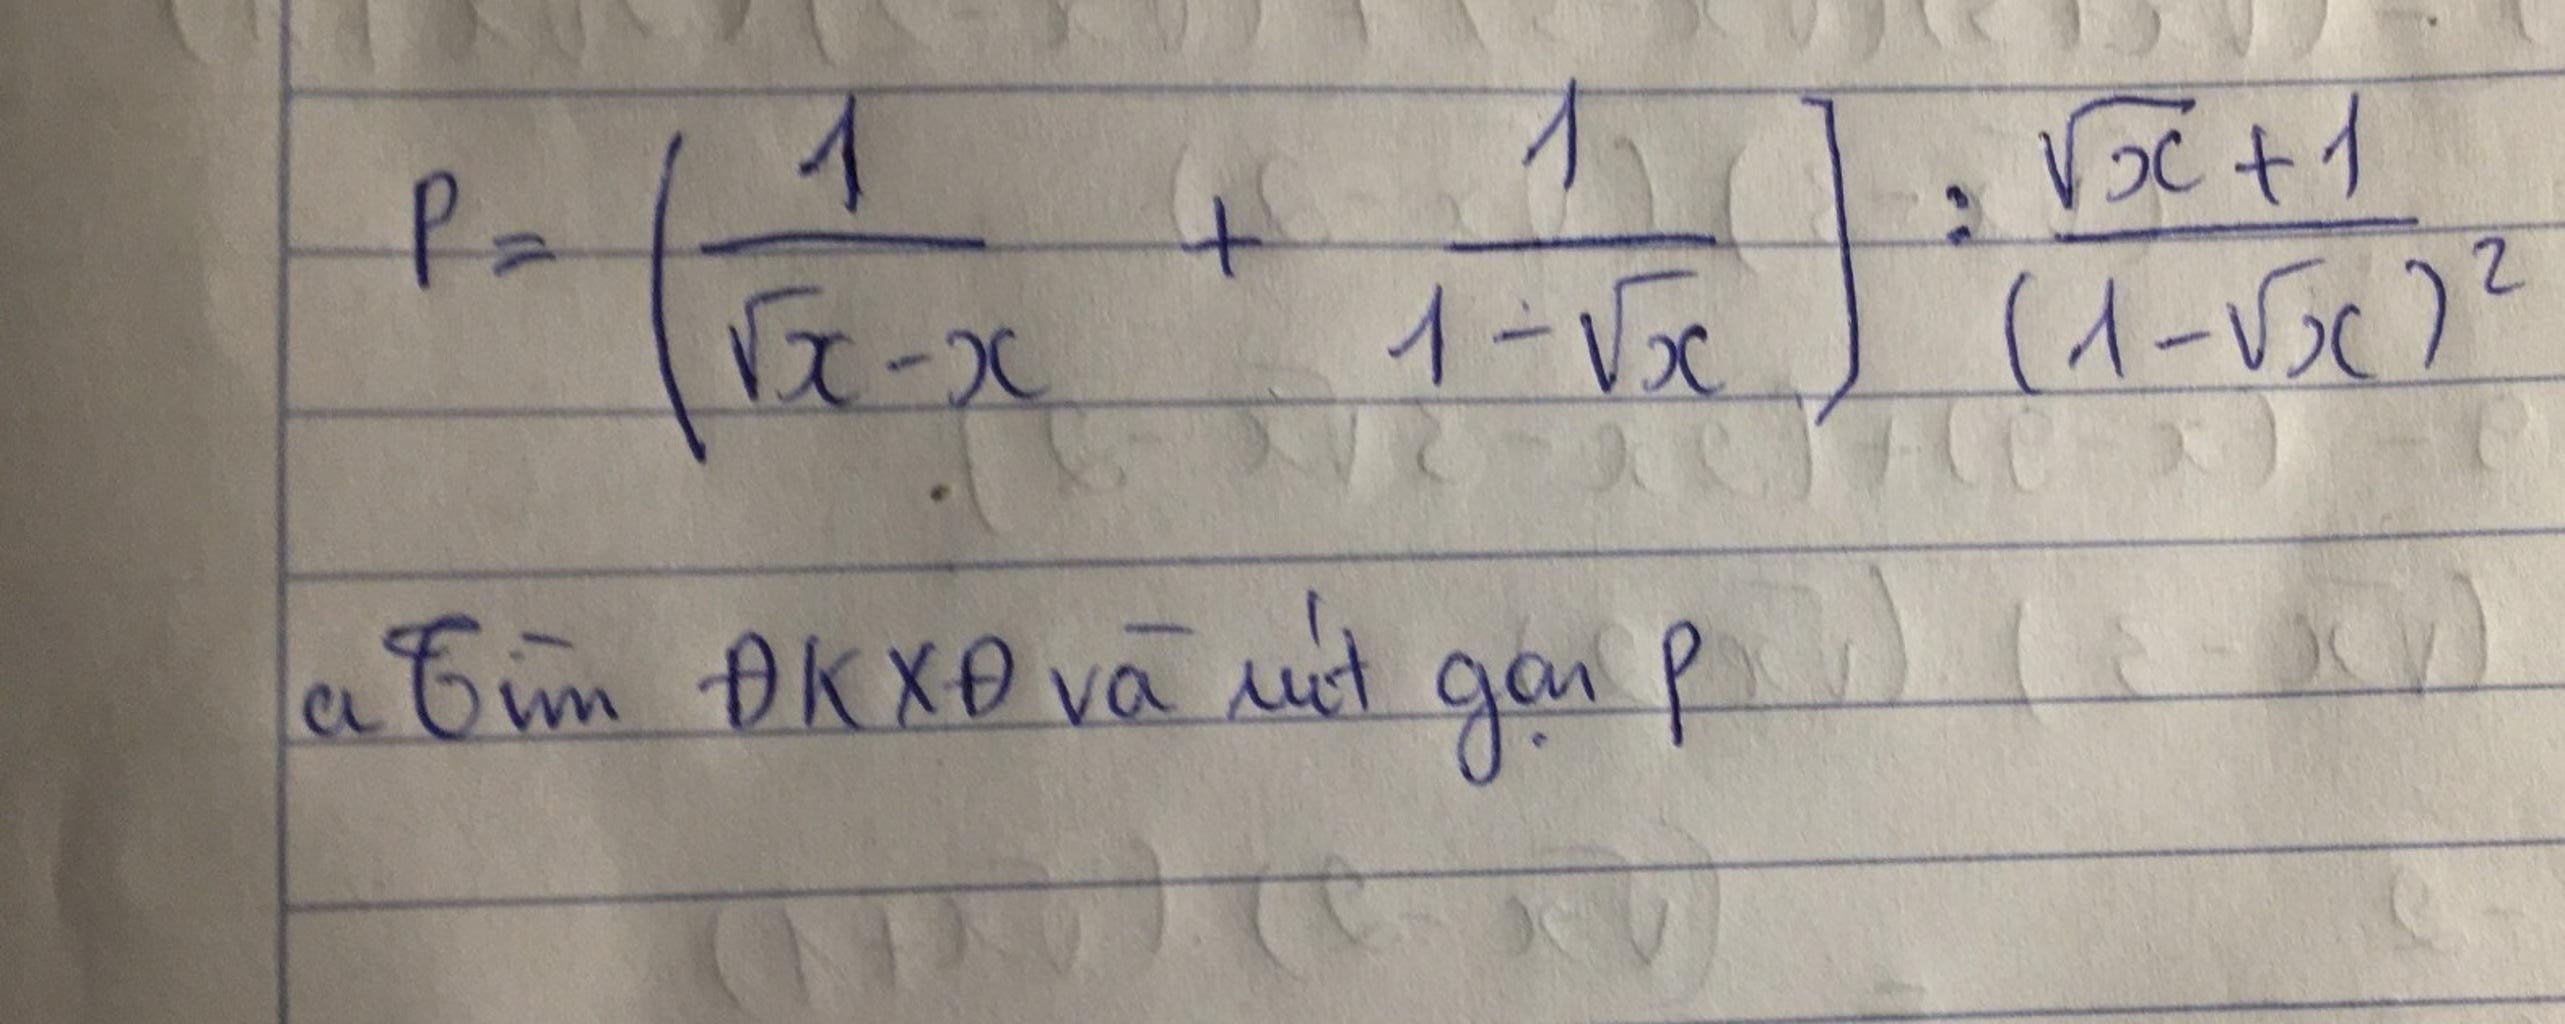 P = ( 1/(√x - x) + 1/(1 - √x) ] : (√x + 1)/(1 - √x)²
a Tìm ĐKXĐ và rút gọn P